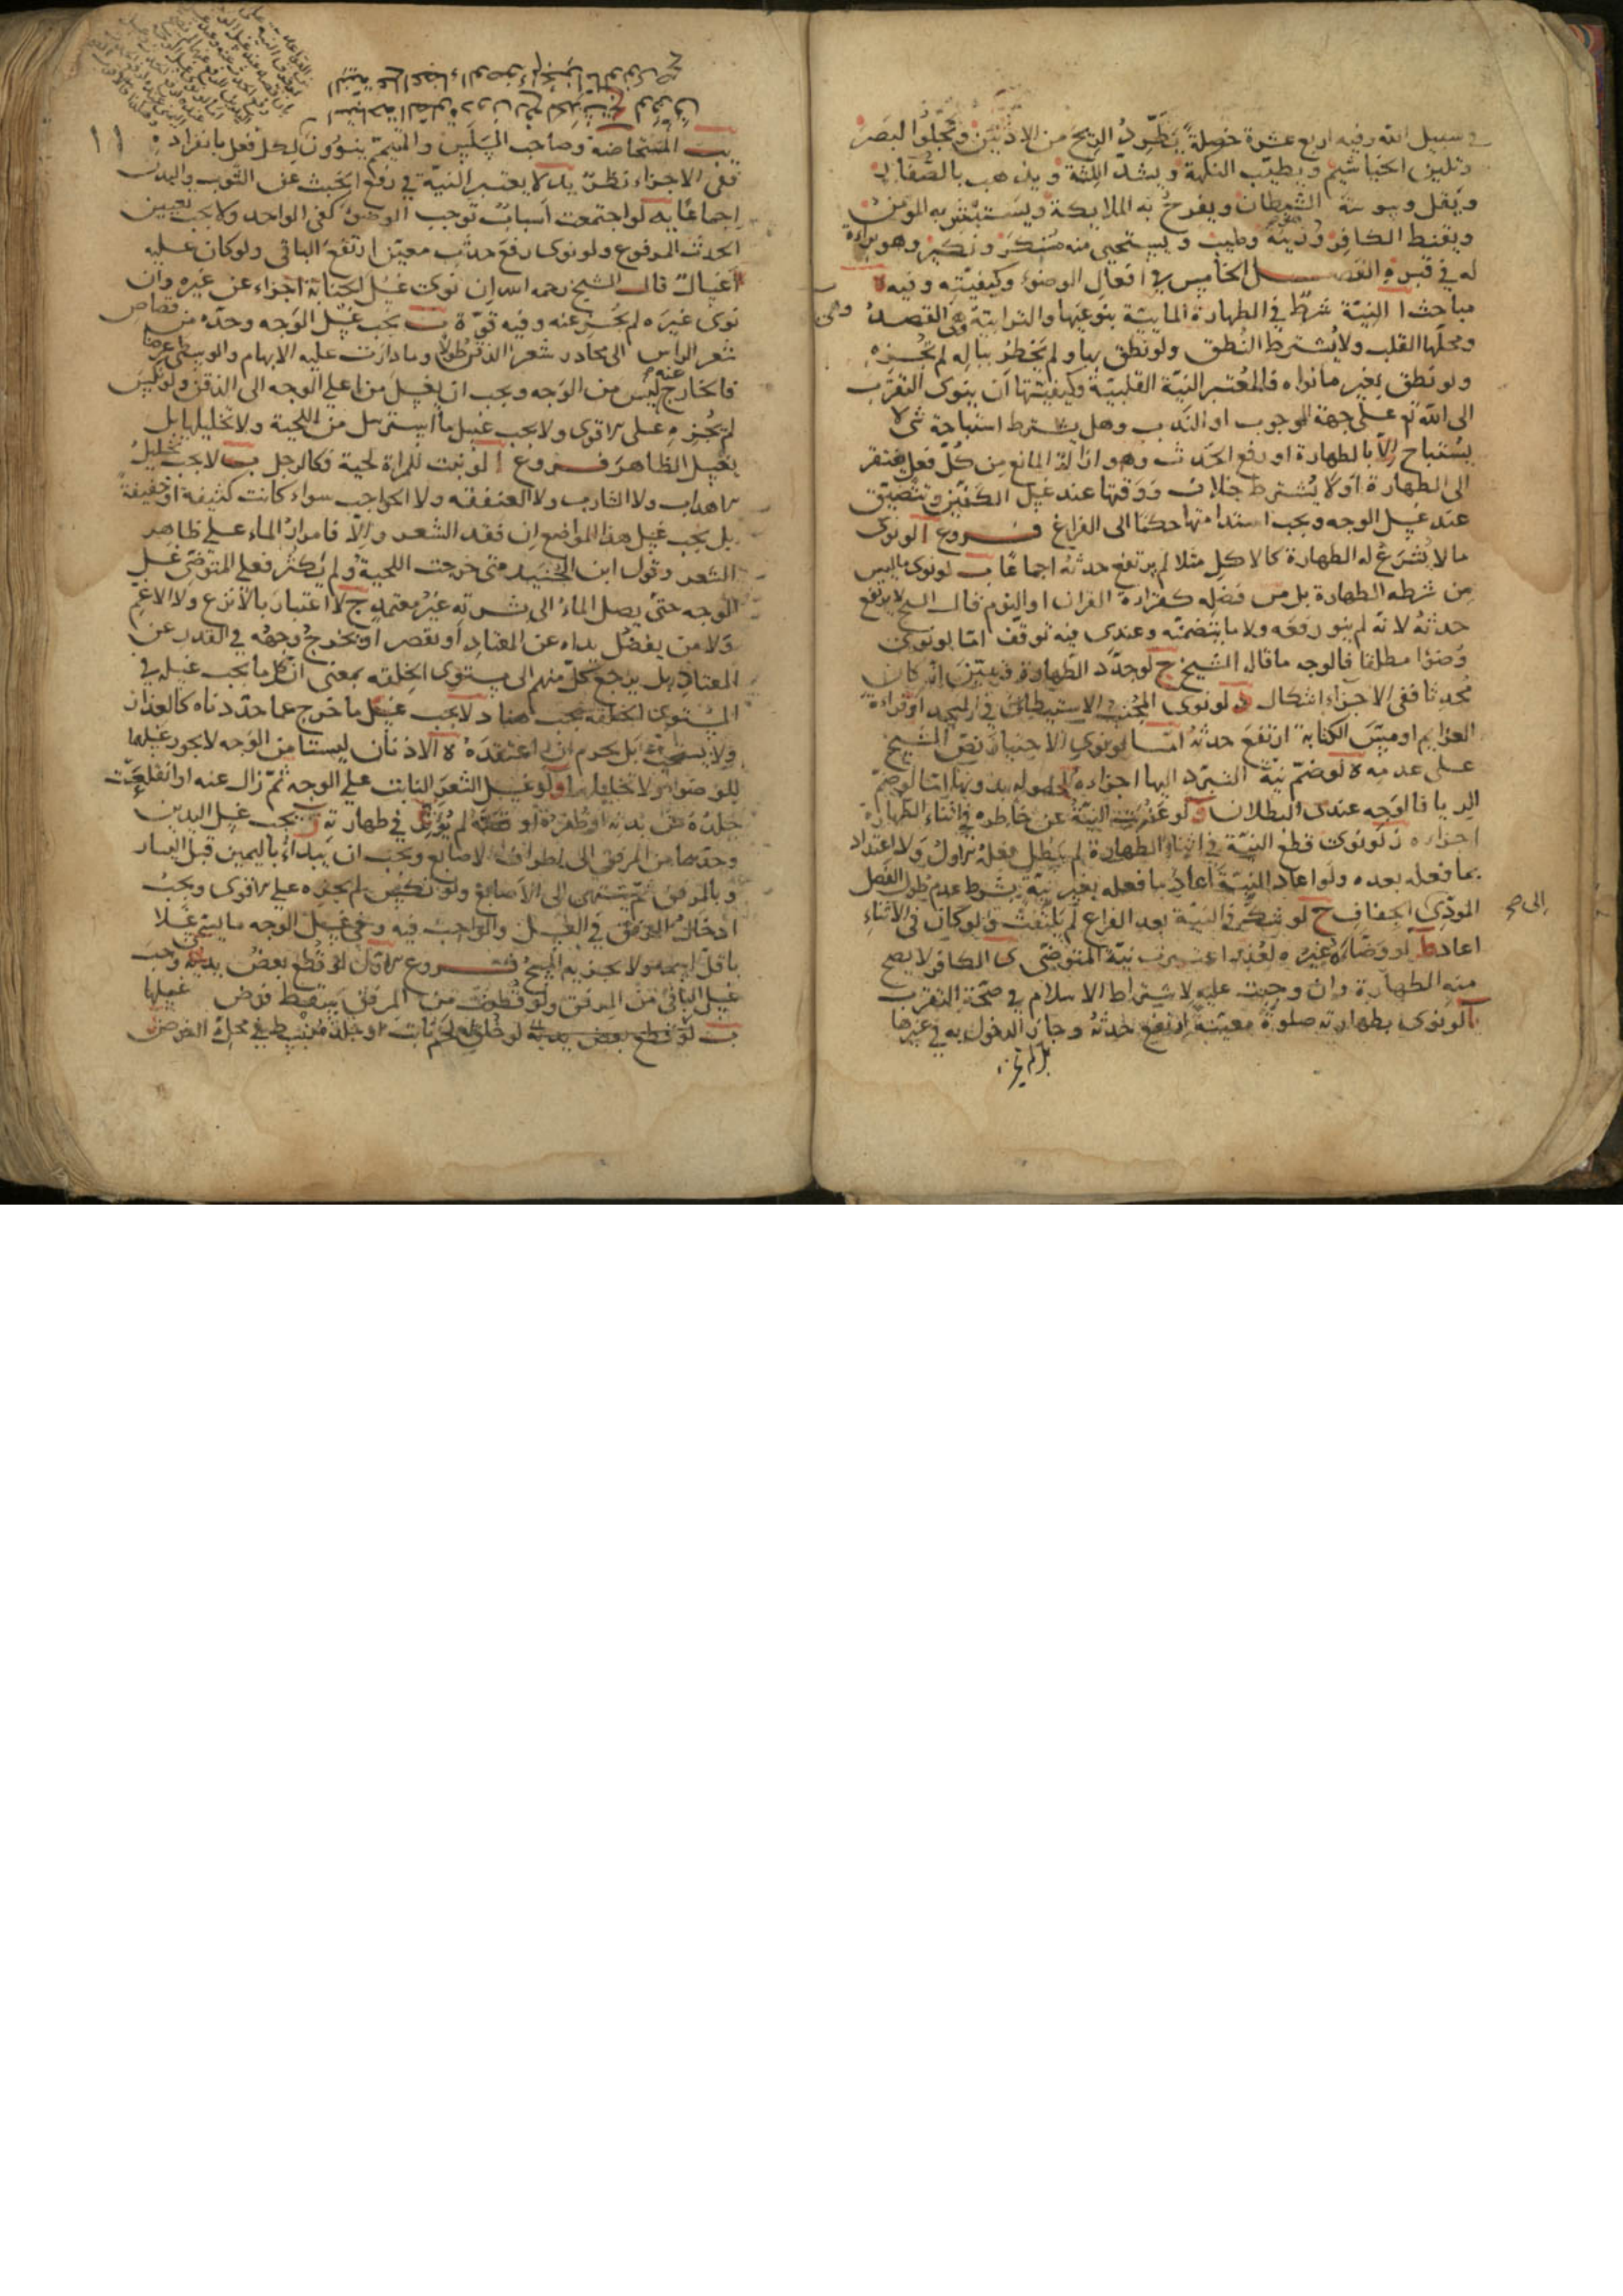 في سبيل الله وفيه اربع عشرة خصلة يطرد الريح من الاذنين ويجلوا البصر
وتليين الخياشيم ويطيب النكهة ويشد اللثة ويذهب بالصفار
ويقل وسوسة الشيطان ويفرح به الملايكة ويستبشر به المومن
ويغيظ الكافر وزينة وطيب ويستحيى منه منكر ونكير وهو براءة
له في قبره الفصل الخامس في افعال الوضوء وكيفيته وفيه
مباحث ا النية شرط في الطهارة المايية بنوعيها والترابية وهى القصد
ومحلها القلب ولا يشترط النطق ولو نطق بها ولم يخطر بباله لم يجزه
ولو نطق بغير ما نواه فالمعتبر النية القلبية وكيفيتها ان ينوى التقرب
الى الله تع على جهة الوجوب او الندب وهل يشترط استباحة شى لا
يستباح الا بالطهارة او رفع الحدث وهو ازالة المانع من كل فعل يفتقر
الى الطهارة او لا يشترط خلاف ووقتها عند غسل الكفين وتتضيق
عند غسل الوجه ويجب استدامتها حكما الى الفراغ فروع ا لو نوى
ما لا تشرع له الطهارة كالاكل مثلا لم يرتفع حدثه اجماعا ب لو نوى ما ليس
من شرطه الطهارة بل من فضله كقراءة القران او النوم قال الشيخ لا يرتفع
حدثه لانه لم ينو رفعه ولا ما يتضمنه وعندى فيه توقف اما لو نوى
وضوءا مطلقا فالوجه ما قاله الشيخ ج لو جدد الطهارة فتبين انه كان
محدثا ففى الاجزاء اشكال د لو نوى المجنب الاستيطان في المسجد او قراءة
العزايم او مس الكتابة ارتفع حدثه اما لو نوى الاجتياز نص الشيخ
على عدمه ه لو ضم نية التبرد اليها اجزاه لحصوله بدونها اما لو ضم
الريا فالوجه عندى البطلان و لو عزبت النية عن خاطره في اثناء الطهارة
اجزاه ز لو نوى قطع النية في اثناء الطهارة لم يبطل فعله الاول ولا اعتداد
بما فعله بعده ولو اعاد النية اعاد ما فعله بغير نية بشرط عدم طول الفصل
المودى الى الجفاف ح لو شك في النية بعد الفراغ لم يلتفت ولو كان في الاثناء
اعاد ط لو وضاه غيره لعذر اعتبرت نية المتوضى ى الكافر لا يصح
منه الطهارة وان وجبت عليه لاشتراط الاسلام في صحة التقرب
يا لو نوى بطهارته صلوة معينة ارتفع حدثه وجاز الدخول به في غيرها
١١
يب المستحاضة وصاحب السلس والمتيمم ينوون لكل فعل بانفراده
ففى الاجزاء نظر يد لا يعتبر النية في رفع الخبث عن الثوب والبدن
اجماعا يه لو اجتمعت اسباب توجب الوضوء كفى الواحد ولا يجب تعيين
الحدث المرفوع ولو نوى رفع حدث معين ارتفع الباقى ولو كان عليه
اغسال قال الشيخ رحمه الله ان نوت غسل الجنابة اجزاء عن غيره وان
نوى غيره لم يجز عنه وفيه قوة ب يجب غسل الوجه وحده من قصاص
شعر الراس الى محادر شعر الذقن طولا وما دارت عليه الابهام والوسطى عرضا
فالخارج عنه ليس من الوجه ويجب ان يغسل من اعلى الوجه الى الذقن ولو نكس
لم يجزه على الاقوى ولا يجب غسل ما استرسل من اللحية ولا تخليلها بل
يغسل الظاهر فروع ا لو نبت للمراة لحية فكالرجل ب لا يجب تخليل
الاهداب ولا الشارب ولا العنفقه ولا الحواجب سواء كانت كثيفة او خفيفة
بل يجب غسل هذا المواضع ان فقد الشعر والا فامرار الماء على ظاهر
الشعر وقول ابن الجنيد متى خرجت اللحية ولم يكثر فعلى المتوضى غسل
الوجه حتى يصل الماء الى بشرته غير معتمد ج لا اعتبار بالانزع ولا الاغم
ولا من يفضل يداه عن المعتاد او يقصر او يخرج وجهه في القدر عن
المعتاد بل يرجع كل منهم الى مستوى الخلقه بمعنى ان كل ما يجب غسله في
المستوى الخلقه يجب هنا د لا يجب غسل ما خرج عما حددناه كالعذار
ولا يستحب بل يحرم ان اعتقده ه الاذنان ليستا من الوجه لا يجوز غسلهما
للوضوء ولا تخليلهما و لو غسل الشعر النابت على الوجه ثم زال عنه او انقلعت
جلدة من بدنه او ظفره لم يؤثر في طهارته ج يجب غسل اليدين
وحدهما من المرفق الى اطراف الاصابع ويجب ان يبداء باليمين قبل اليسار
وبالمرفق ثم ينتهى الى الاصابع ولو نكس لم يجزه على الاقوى ويجب
ادخال المرفق في الغسل والواجب فيه وفى غسل الوجه ما يسمى غسلا
باقل اسمه ولا يجزيه المسح فروع الاول لو قطع بعض يديه وجب
غسل الباقى من المرفق ولو قطعت من المرفق سقط فرض غسلها
ب لو خلق له لحم نابت او جلد منبسط في محل الفرض